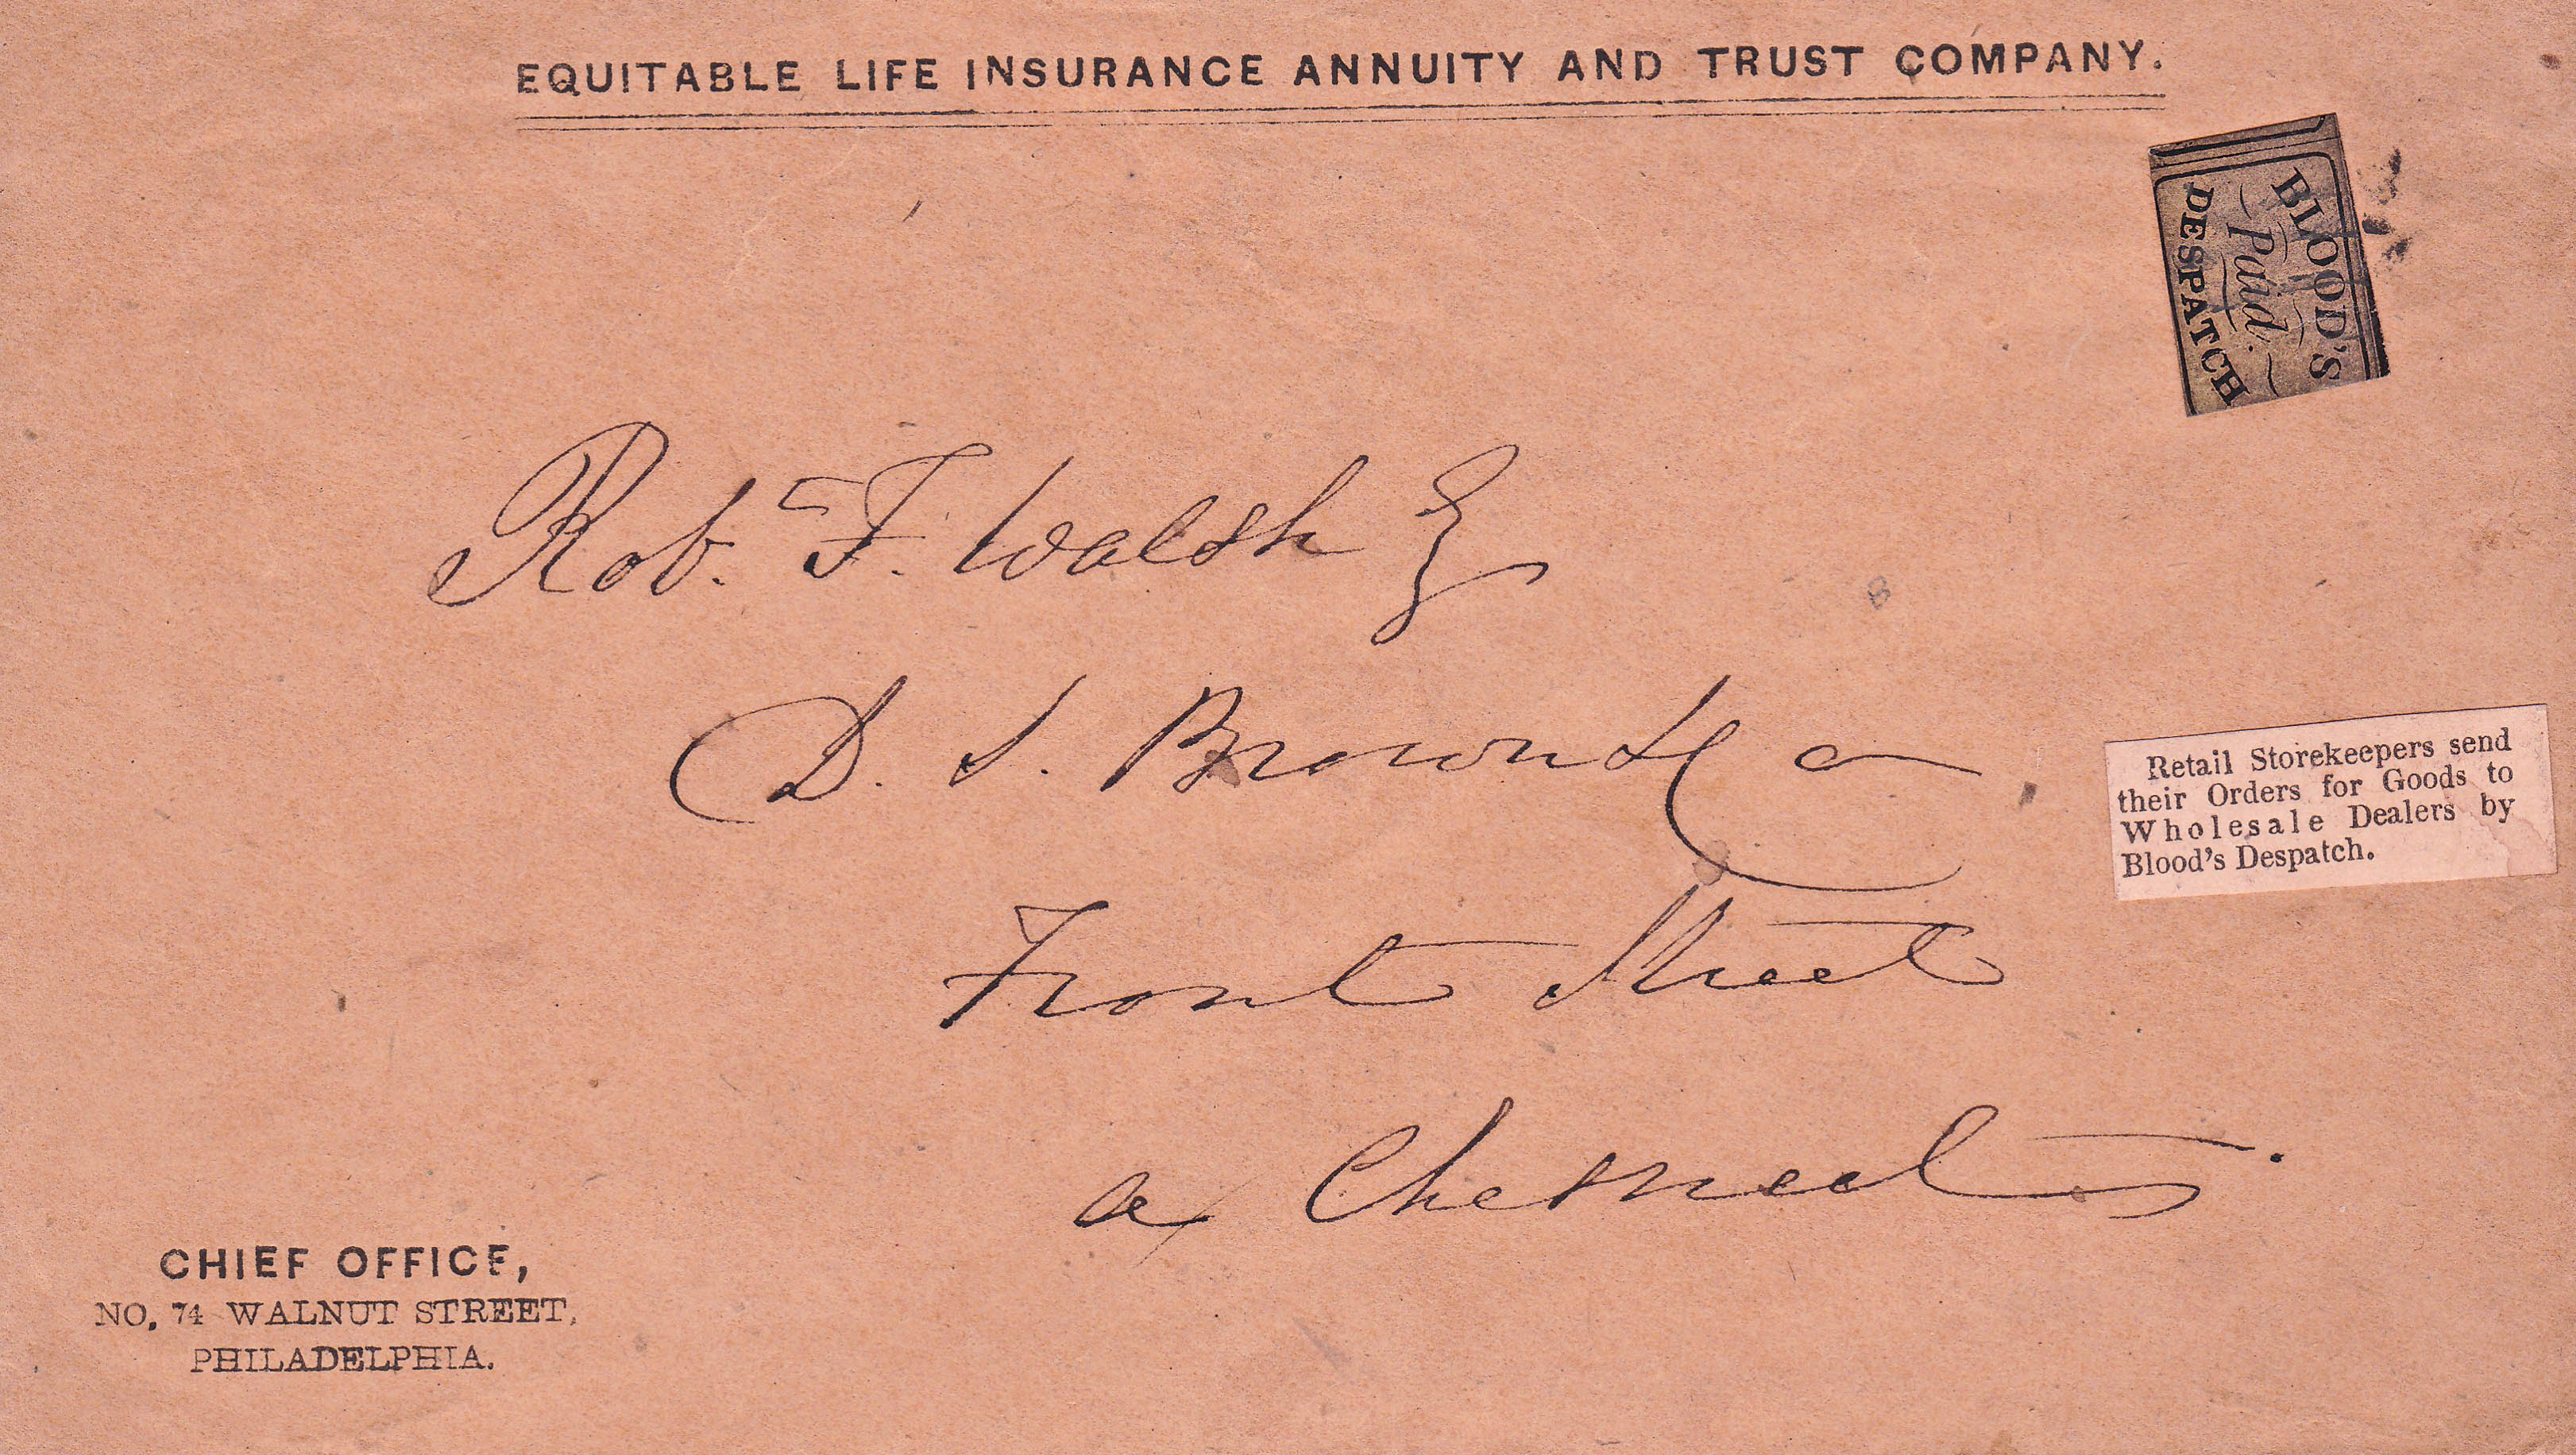 EQUITABLE LIFE INSURANCE ANNUITY AND TRUST COMPANY.
BLOOD'S
Paid.
DESPATCH
Rob. F. Walsh
D. S. Brown & Co
Front Street
Retail Storekeepers send
their Orders for Goods to
Wholesale Dealers by
Blood's Despatch.
CHIEF OFFICE,
NO. 74 WALNUT STREET,
PHILADELPHIA.